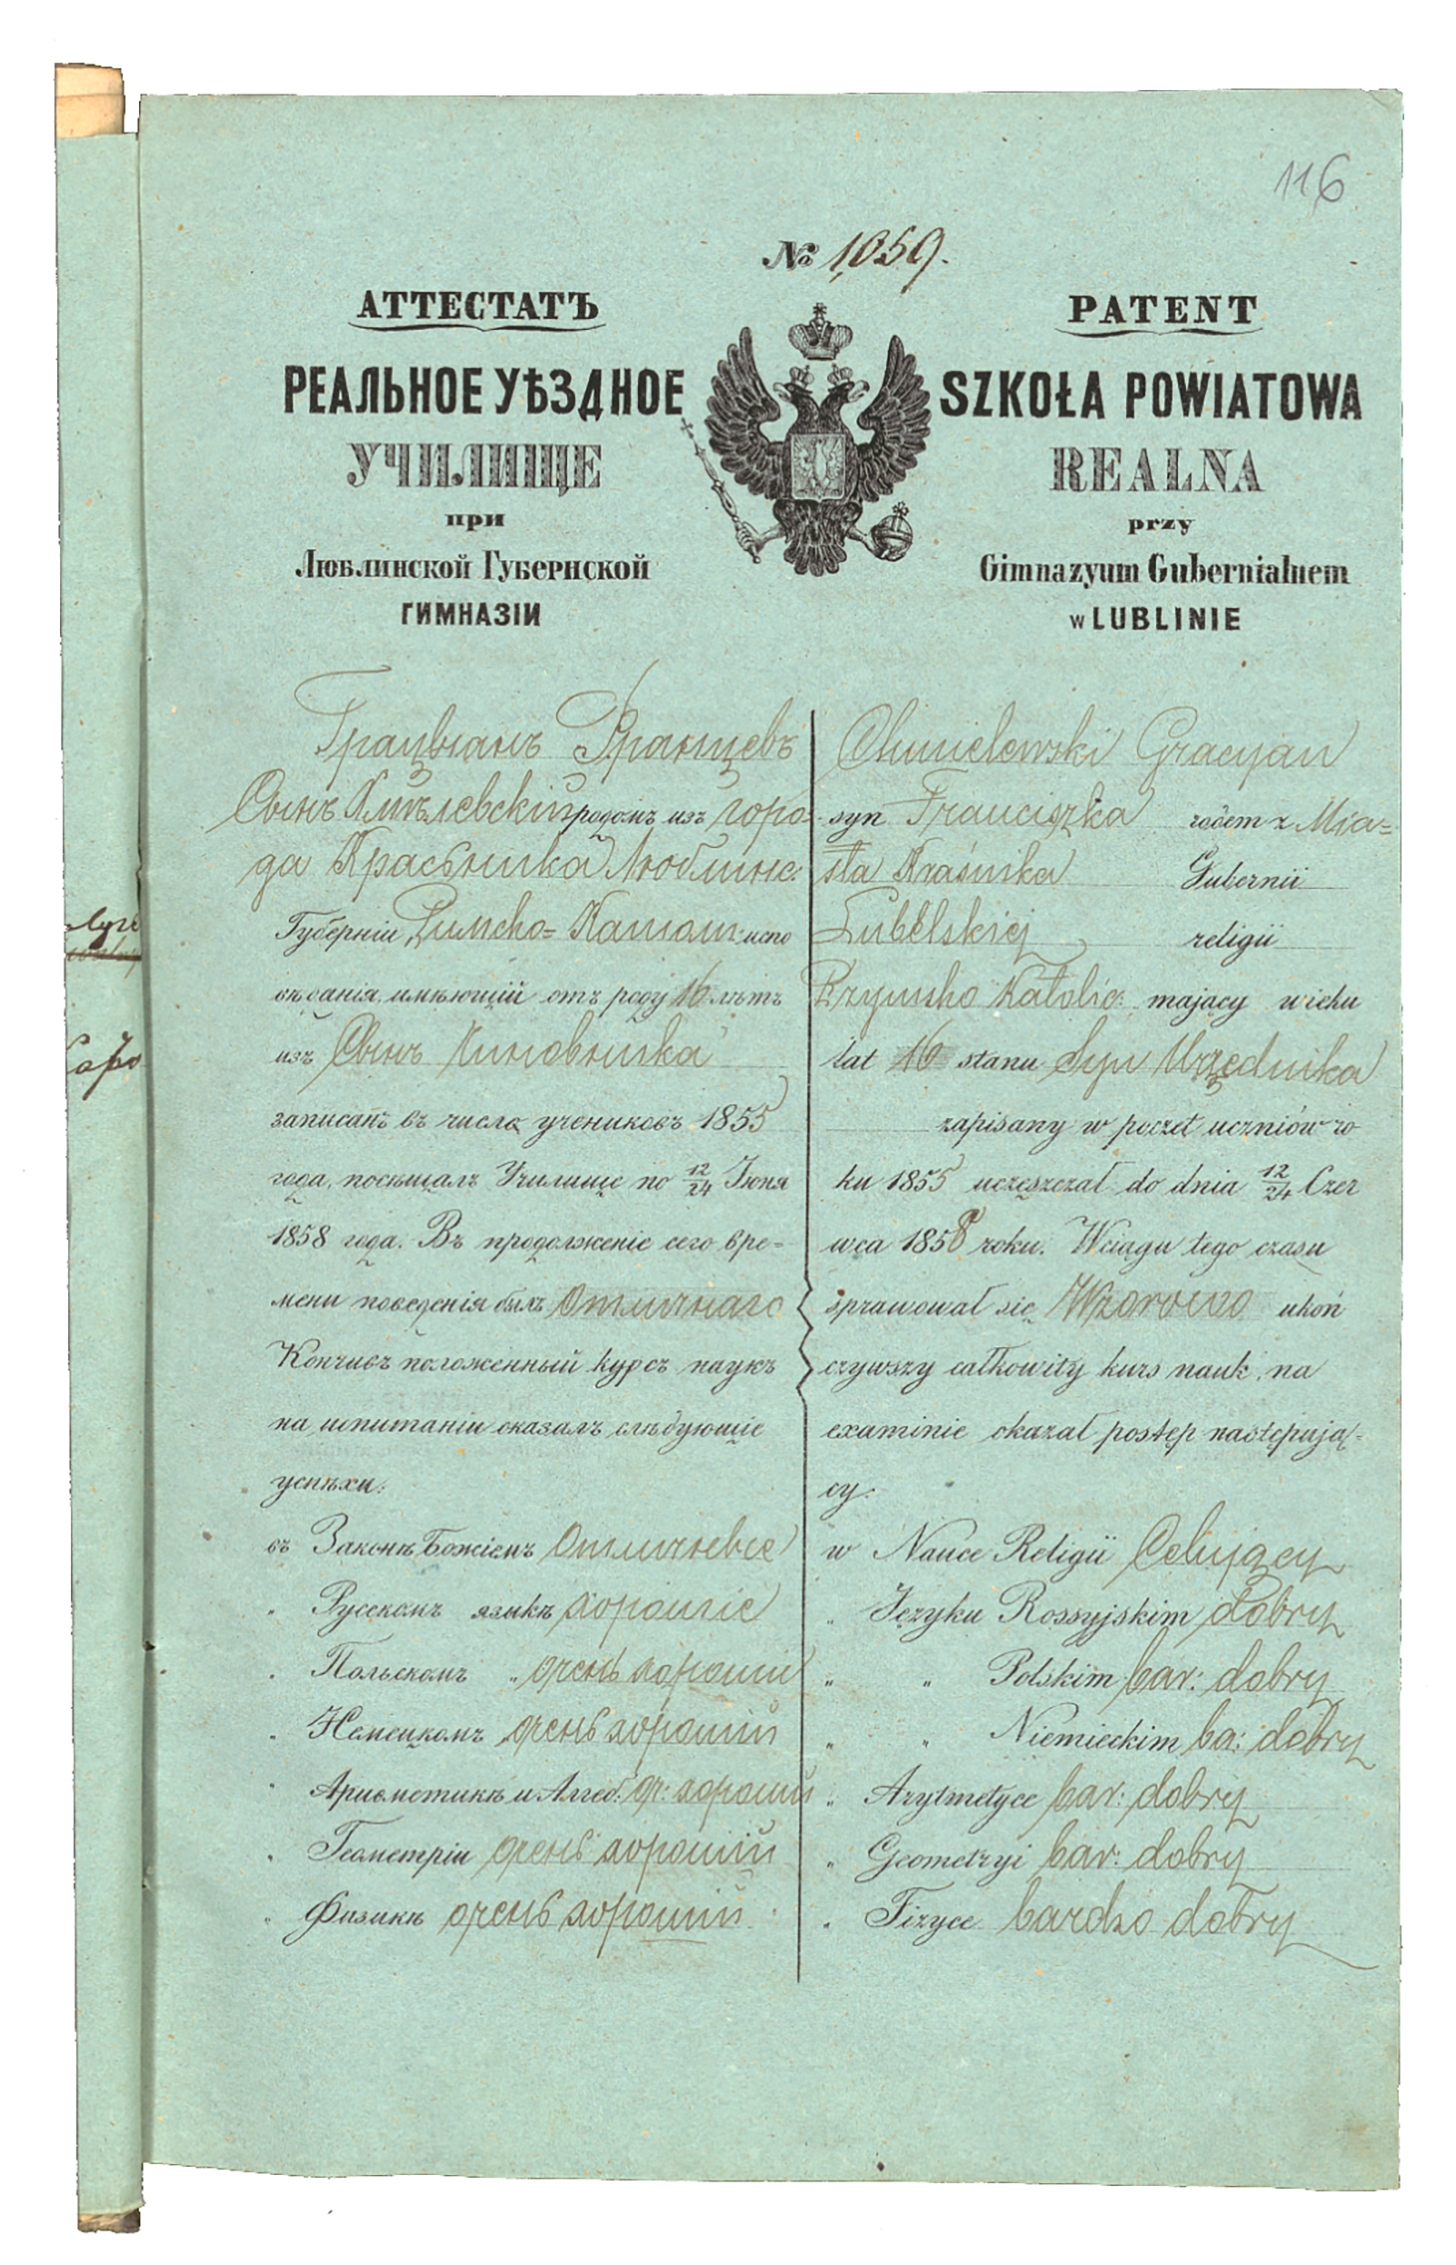 116
№ 1,059.
АТТЕСТАТЪ
РЕАЛЬНОЕ УѢЗДНОЕ
УЧИЛИЩЕ
при
Люблинской Губернской
ГИМНАЗІИ
PATENT
SZKOŁA POWIATOWA
REALNA
przy
Gimnazyum Gubernialnem
w LUBLINIE
Грацыанъ Францевъ
Сынъ Хмѣлевскій родомъ из горо-
да Красьника Люблинс:
Губерніи, Римско= Катол: испо
вѣданія, имѣющій отъ роду 16 лѣтъ
изъ Сынъ Чиновника
записанъ въ число учениковъ 1855
года, посѣщалъ Училище по 12/24 Іюня
1858 года. Въ продолженіе сего вре-
мени поведенія былъ Отличнаго
Кончивъ положенный курсъ наукъ
на испытаніи оказалъ слѣдующіе
успѣхи:
въ Законѣ Божіемъ Отличные
„ Русскомъ языкѣ хорошіе
„ Польскомъ „ очень хорошій
„ Немецкомъ очень хорошій
„ Ариѳметикѣ и Алгеб: оч: хорошій
„ Геометріи очень хорошій
„ Физикѣ очень хорошій
Chmielewski Gracyan
syn Franciszka rodem z Mia=
sta Kraśnika Gubernii
Lubelskiej religii
Rzymsko Katolic: mający wieku
lat 16 stanu Syn Urzędnika
zapisany w poczet uczniów ro
ku 1855 uczęszczał do dnia 12/24 Czer
wca 1858 roku. W ciągu tego czasu
sprawował się Wzorowo ukoń
czywszy całkowity kurs nauk, na
examinie okazał postęp następują=
cy:
w Nauce Religii Celujący
„ Języku Rossyjskim dobry
„ „ Polskim bar: dobry
„ „ Niemieckim ba: dobry
„ Arytmetyce bar: dobry
„ Geometryi bar: dobry
„ Fizyce bardzo dobry